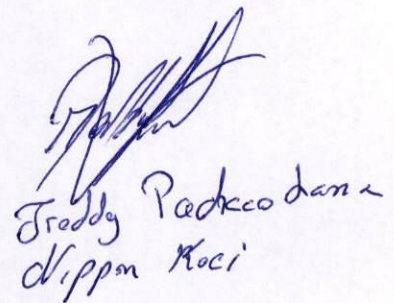 Freddy Pacheco Lanza
Nippon Koei